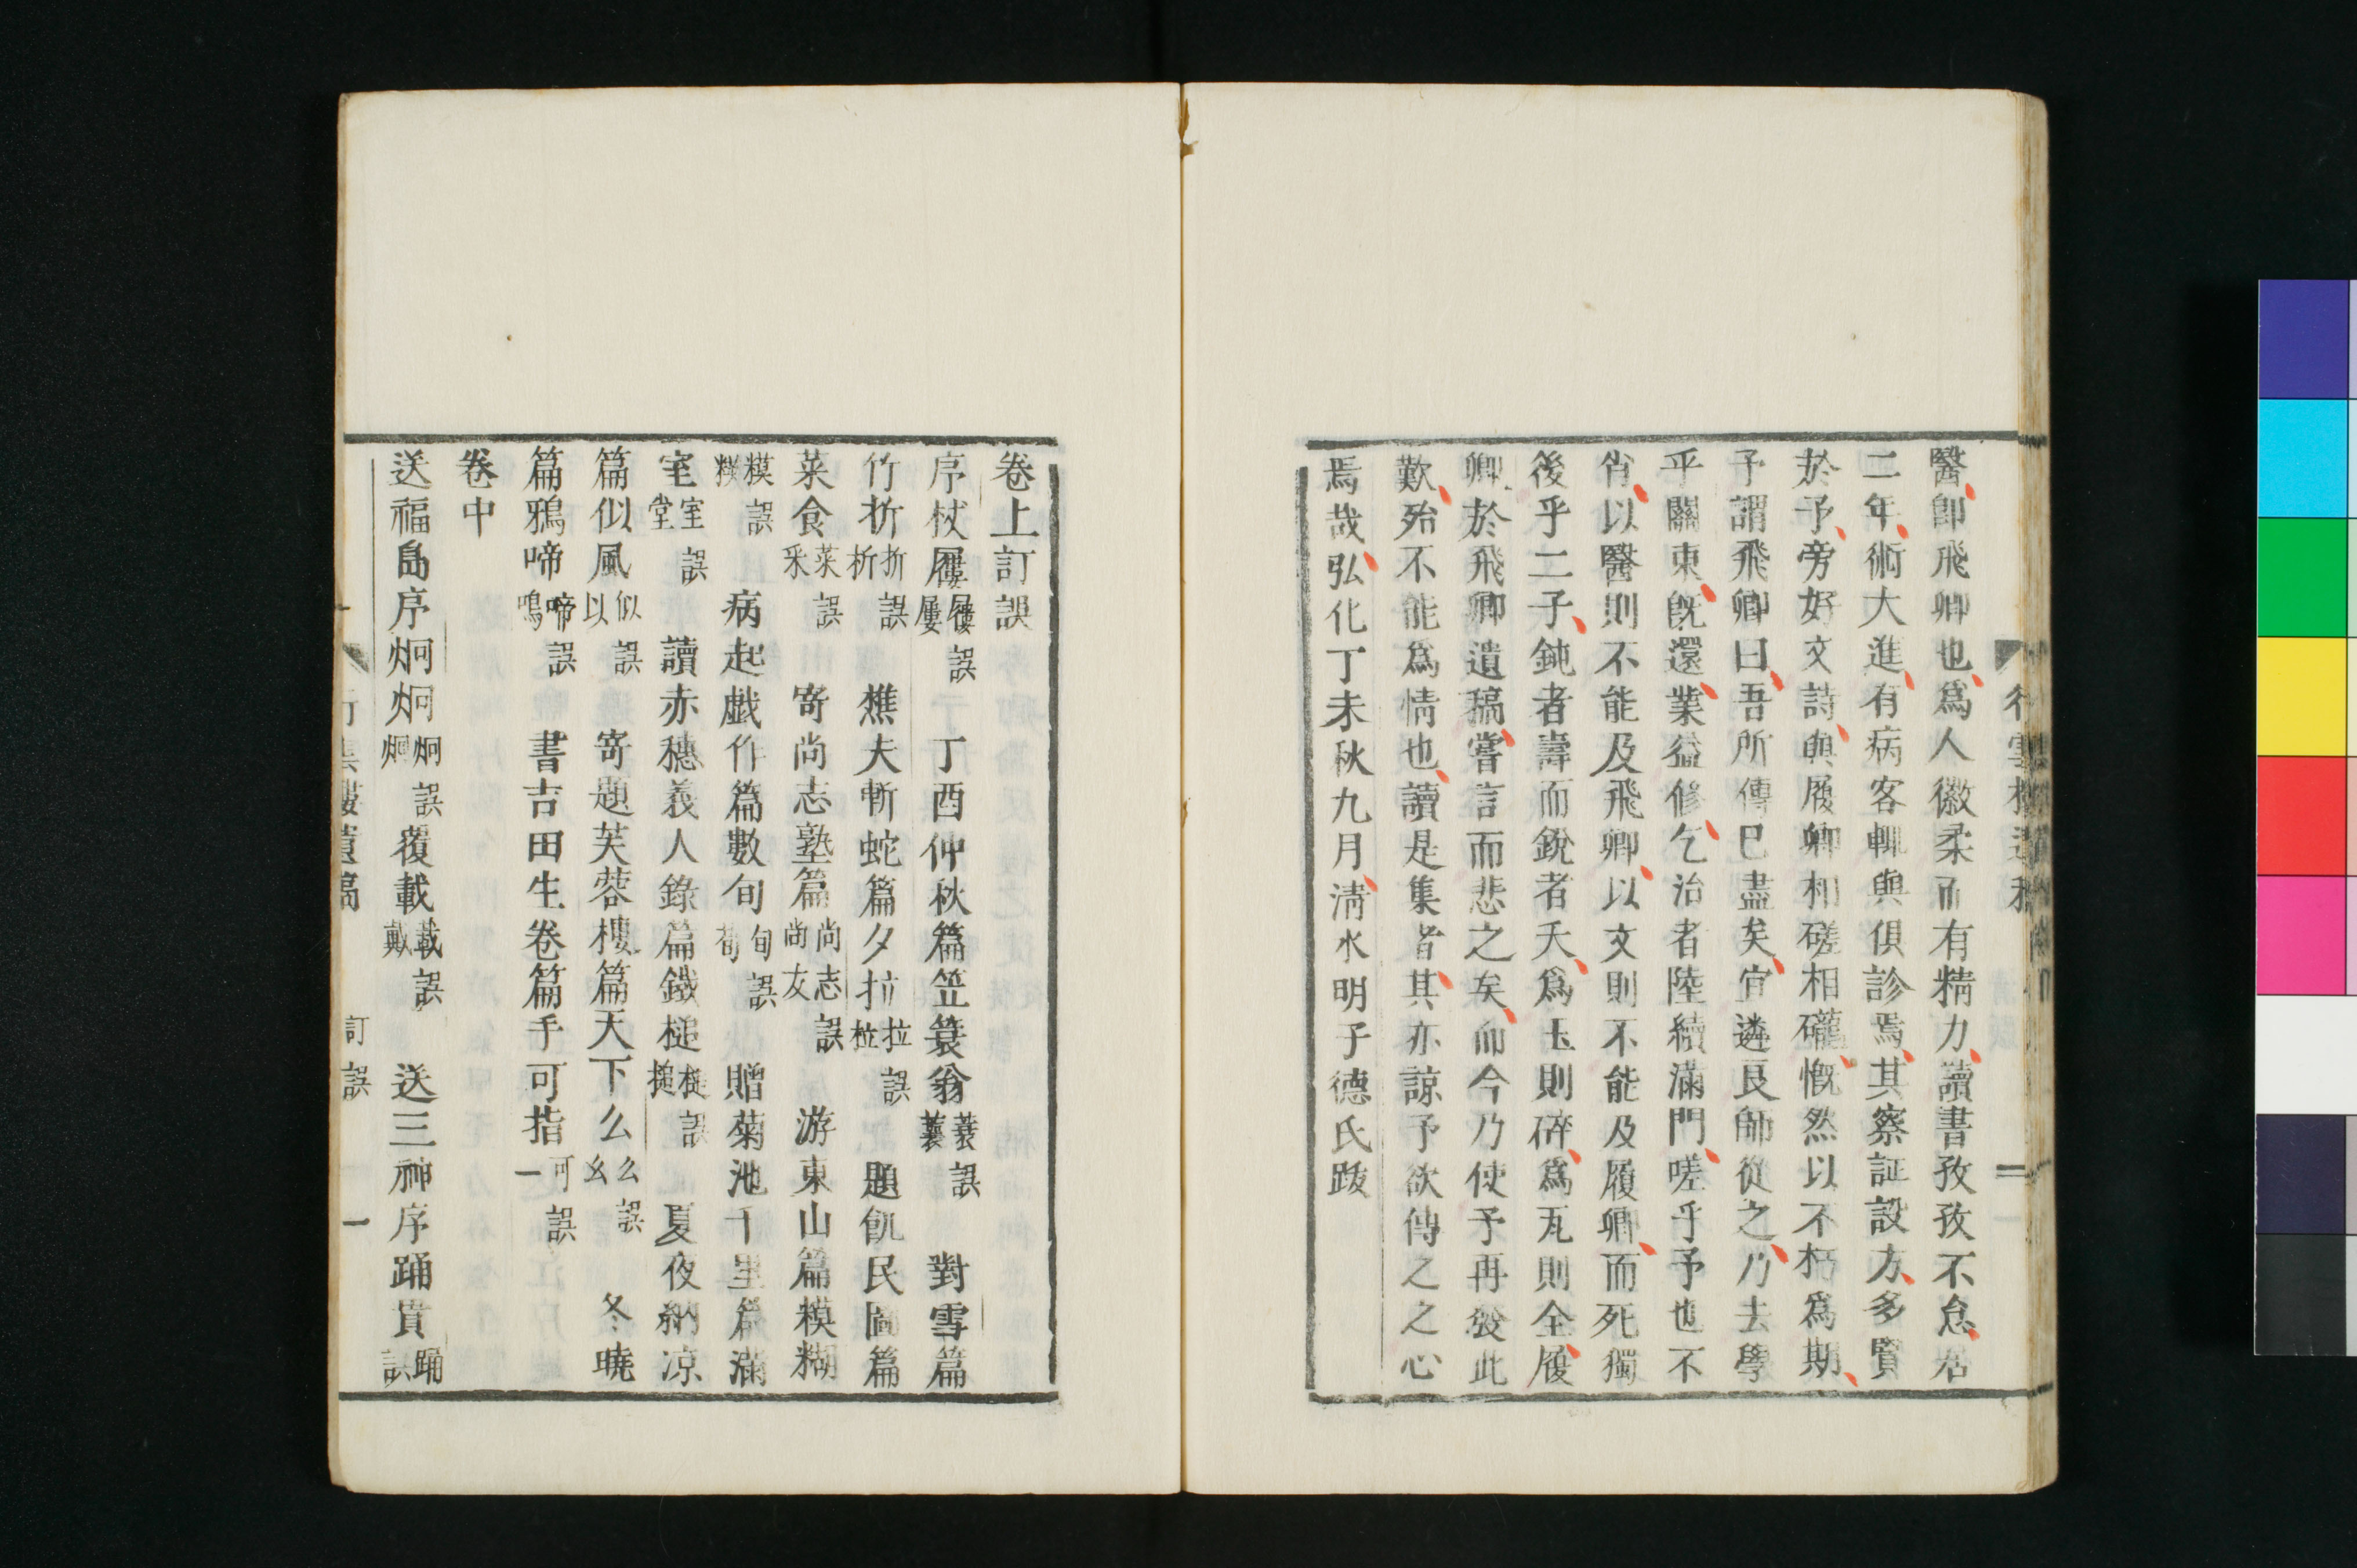 醫卽飛卿也爲人徽柔而有精力讀書孜孜不怠居
二年術大進有病客輒與俱診焉其察証設方多賢
於予旁好文詩與履卿相磋相礲慨然以不朽爲期
予謂飛卿曰吾所傳已盡矣宜遴良師從之乃去學
乎關東旣還業益修乞治者陸續滿門嗟乎予也不
肖以醫則不能及飛卿以文則不能及履卿而死獨
後乎二子鈍者壽而銳者夭爲玉則碎爲瓦則全履
卿於飛卿遺稿嘗言而悲之矣而今乃使予再發此
歎殆不能爲情也讀是集者其亦諒予欲傳之之心
焉哉弘化丁未秋九月淸水明子德氏跋
卷上訂誤
序杖屨屨屢誤 丁酉仲秋篇笠簑翁簑蓑誤 對雪篇
竹折折析誤 樵夫斬蛇篇夕拉拉柆誤 題飢民圖篇
菜食菜采誤 寄尚志塾篇尚志尚友誤 游東山篇模糊
模糢誤 病起戯作篇數旬旬荀誤 贈菊池千里篇滿
室室堂誤 讀赤穗義人錄篇鐵槌槌搥誤 夏夜納凉
篇似風似以誤 寄題芙蓉樓篇天下么么幺誤 冬曉
篇鴉啼啼鳴誤 書吉田生卷篇手可指可一誤
卷中
送福島序炯炯炯烱誤 覆載載戴誤 送三神序踊貫踊誤
訂誤 一